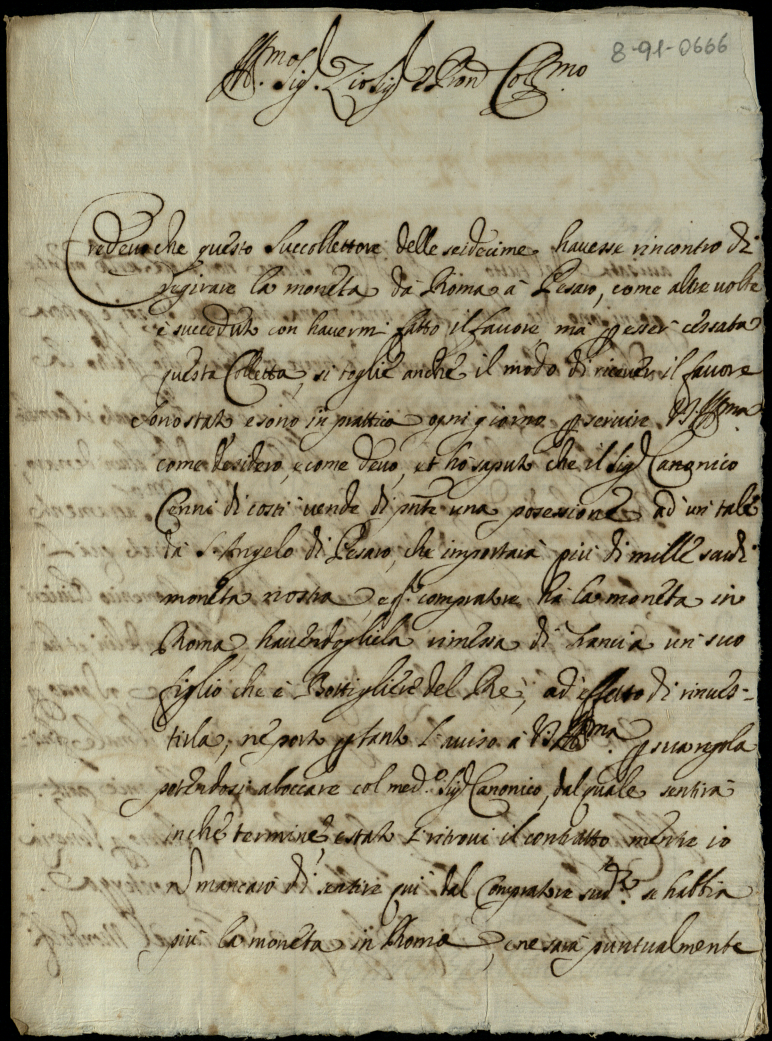 8-91-0666
Ill.mo Sig. Zio Sig. e Pron Col.mo
Credevo che questo Succollettore delle seidecime havesse rincontro di
regirare la moneta da Roma à Pesaro, come altre volte
è succeduto con havermi fatto il favore, mà p esser cessata
questa Colletta, si toglie anche il modo di ricever il favore
sono stato e sono in prattica ogni giorno p servire V.S. Ill.ma
come desidero, e come devo, et hò saputo che il Sig. Canonico
Cenni di costì vende di pnte una posessione ad un tale
da S. Angelo di Pesaro, che importarà più di mille scudi
moneta nostra e q. compratore hà la moneta in
Roma havendogliela rimessa di Francia un suo
figlio che è Bottigliere del Rè, ad effetto di rinues-
tirla, ne porto p tanto l'auiso à V.S. Ill.ma p sua regola
potendosi aboccare col med.o Sig. Canonico, dal quale sentirà
in che termine e stato si ritroui il contratto mentre io
n mancarò di sentire qui dal Compratore sud.o se habbia
più la moneta in Roma, che sarà puntualmente